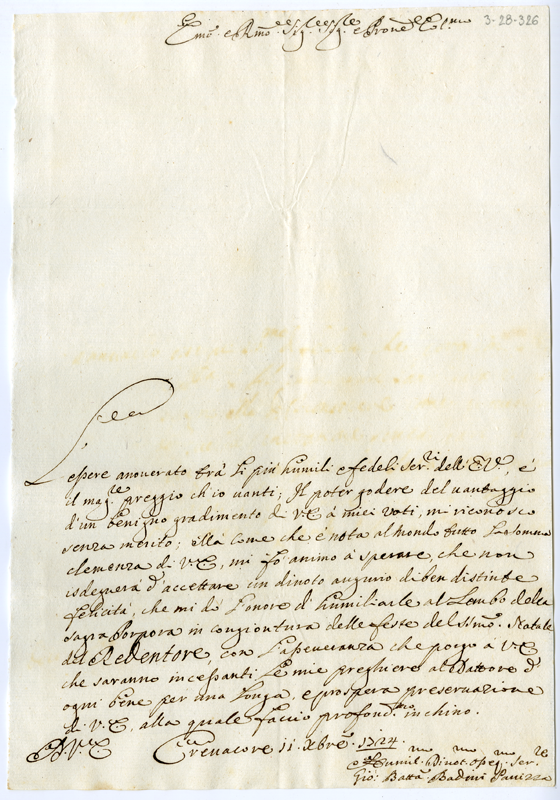 3-28-326
Emo. e Rmo. Sig.r Sig.r e Prone Col.mo
L'
essere anoverato trà li più humili e fedeli Ser.ri dell' E V., è
il mag.re preggio ch'io vanti; Il poter godere del vantaggio
d'un benigno gradimento di V E à miei voti, mi riconosco
senza merito; Mà come che è nota al mondo tutto la somma
clemenza di V E, mi fò animo à sperare, che non
isdegnerà d'accettare un divoto augurio di ben distinte
felicità, che mi do l'onore d'humiliarle al Lembo della
sagra Porpora in congiontura delle feste del SSmo. Natale
del Redentore, con l'apsicuranza che porgo a V E
che saranno incessanti le mie preghiere al Dattore d'
ogni bene per una longa, e prospera preservazione
di V. E, alla quale faccio profond.mo inchino.
D. V. E Crevacore 11 Xbre. 1724
Humil.mo Divot.mo Obeg.mo Ser.re
Gio: Batta. Badini